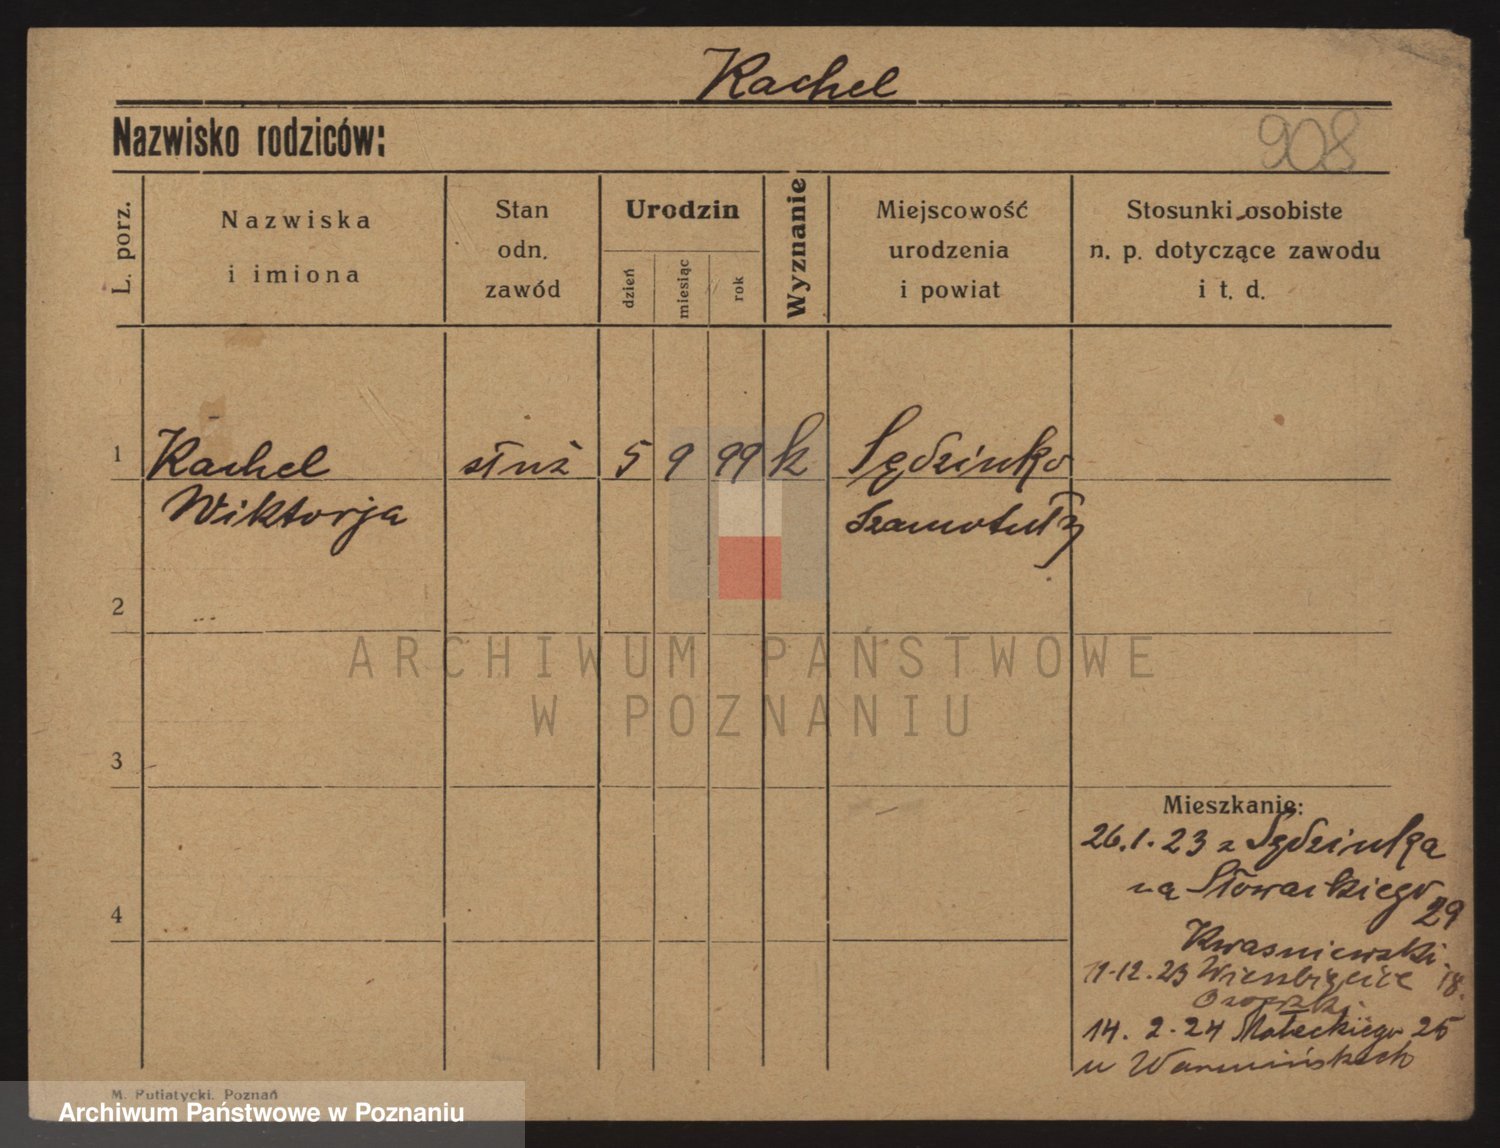 Rachel
Nazwisko rodziców:
908
L. porz.
Nazwiska
i imiona
Stan
odn.
zawód
Urodzin
dzień
miesiąc
rok
Wyznanie
Miejscowość
urodzenia
i powiat
Stosunki osobiste
n. p. dotyczące zawodu
i t. d.
1 Rachel służ 5 9 99 k Sędzinko
Wiktorja Szamotuły
2
3
4
Mieszkanie:
26.1.23 z Sędzinka
na Słowackiego 29
Kwasniewski.
11.12.23 Wierzbięcice 18.
14. 2. 24 Małeckiego 25
u Warmińskich
M. Putiatycki. Poznań
ARCHIWUM PAŃSTWOWE
W POZNANIU
Archiwum Państwowe w Poznaniu